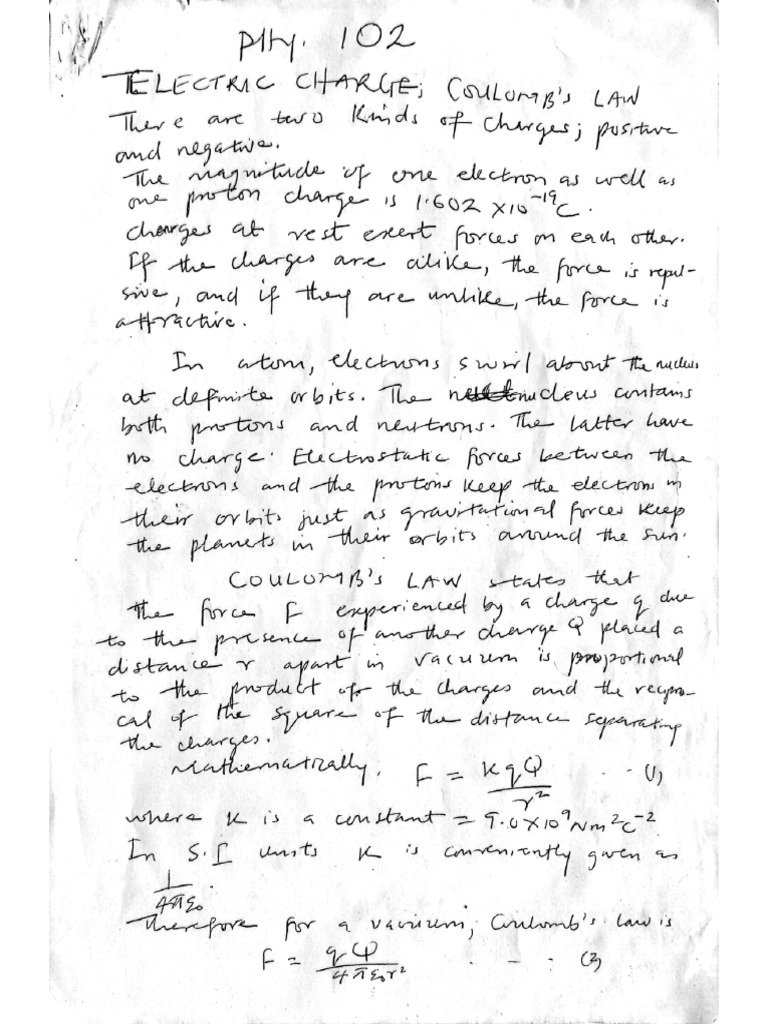 PHY. 102
ELECTRIC CHARGE; COULOMB'S LAW
There are two kinds of charges; positive
and negative.
The magnitude of one electron as well as
one proton charge is 1.602 x10⁻¹⁹C.
charges at rest exert forces on each other.
If the charges are alike, the force is repul-
sive, and if they are unlike, the force is
attractive.
In atom, electrons swirl about the nucleus
at definite orbits. The nucleus contains
both protons and neutrons. The latter have
no charge. Electrostatic forces between the
electrons and the protons keep the electrons in
their orbits just as gravitational forces keep
the planets in their orbits around the sun.
COULOMB'S LAW states that
the force F experienced by a charge q due
to the presence of another charge Q placed a
distance r apart in vacuum is proportional
to the product of the charges and the recipro-
cal of the square of the distance separating
the charges.
Mathematically, F = KqQ/r² ... (1)
where K is a constant = 9.0x10⁹Nm²C⁻²
In S.I units K is conveniently given as
1/4πε₀.
Therefore for a vacuum, Coulomb's law is
F = qQ/4πε₀r² - - . (2)